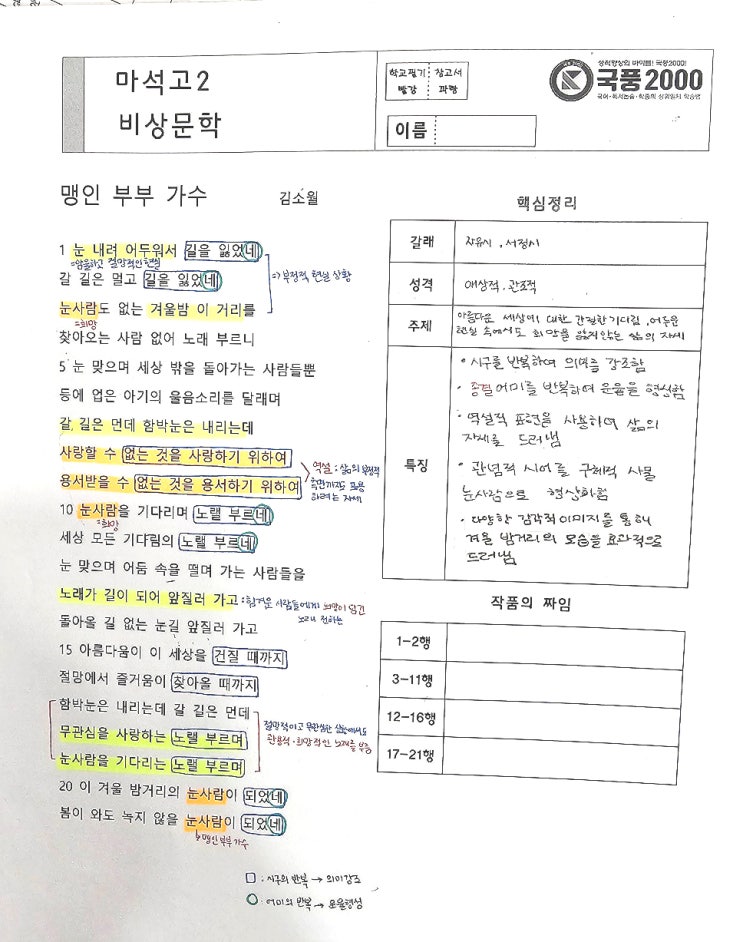 마석고2
비상문학
학교필기 참고서
빨강 파랑
이름
국풍2000
맹인 부부 가수 김소월
1 눈 내려 어두워서 길을 잃었네
=암울하고 절망적인 현실
갈 길은 멀고 길을 잃었네
⇒부정적 현실 상황
눈사람도 없는 겨울밤 이 거리를
=희망
찾아오는 사람 없어 노래 부르니
5 눈 맞으며 세상 밖을 돌아가는 사람들뿐
등에 업은 아기의 울음소리를 달래며
갈 길은 먼데 함박눈은 내리는데
사랑할 수 없는 것을 사랑하기 위하여
용서받을 수 없는 것을 용서하기 위하여
역설 : 삶의 부정적
측면까지도 포용
하려는 자세
10 눈사람을 기다리며 노랠 부르네
=희망
세상 모든 기다림의 노랠 부르네
눈 맞으며 어둠 속을 떨며 가는 사람들을
노래가 길이 되어 앞질러 가고
:힘겨운 사람들에게 희망이 담긴
노래 전하는
돌아올 길 없는 눈길 앞질러 가고
15 아름다움이 이 세상을 건질 때까지
절망에서 즐거움이 찾아올 때까지
함박눈은 내리는데 갈 길은 먼데
무관심을 사랑하는 노랠 부르며
눈사람을 기다리는 노랠 부르며
절망적이고 무관심한 상황에서도
관용적·희망적인 노래를 부름
20 이 겨울 밤거리의 눈사람이 되었네
봄이 와도 녹지 않을 눈사람이 되었네
맹인 부부 가수
□ : 시구의 반복 → 의미강조
○ : 어미의 반복 → 운율형성
핵심정리
갈래 자유시, 서정시
성격 애상적, 관조적
주제 아름다운 세상에 대한 간절한 기다림, 어두운
현실 속에서도 희망을 잃지않는 삶의 자세
특징
• 시구를 반복하여 의미를 강조함
• 종결어미를 반복하여 운율을 형성함
• 역설적 표현을 사용하여 삶의
자세를 드러냄
• 관념적 시어를 구체적 사물
눈사람으로 형상화함
• 다양한 감각적 이미지를 통해
겨울 밤거리의 모습을 효과적으로
드러냄
작품의 짜임
1-2행
3-11행
12-16행
17-21행